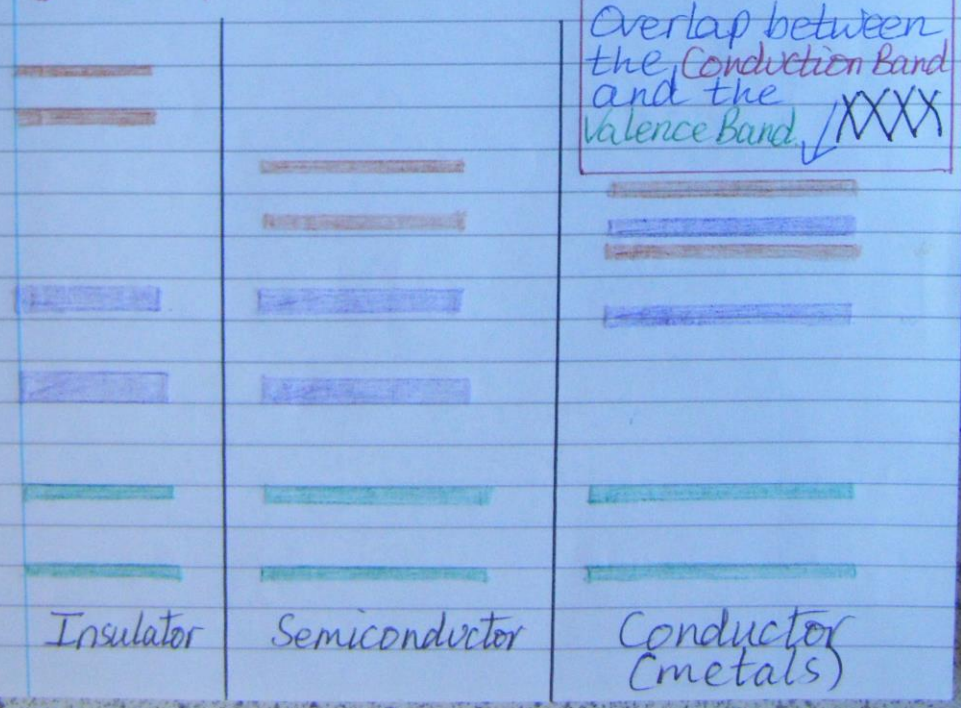 Overlap between
the Conduction Band
and the
Valence Band.
XXXX
Insulator
Semiconductor
Conductor
(metals)